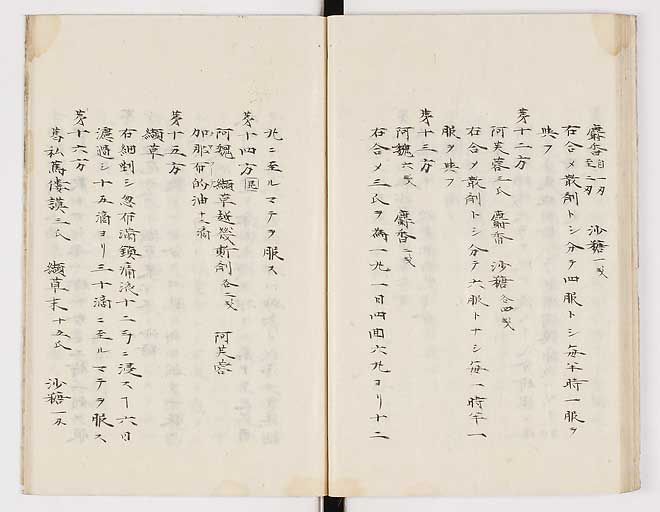 麝香自一刄至二刄 沙糖一戔
右合メ散剤トシ分テ四服トシ毎半時一服ヲ
與フ
第十二方
阿芙蓉三氏 麝香 沙糖各四戔
右合メ散剤トシ分テ六服トナシ毎一時半一
服ヲ與フ
第十三方
阿魏六戔 麝香二戔
右合メ三氏ヲ為一丸一日四回六丸ヨリ十二
丸ニ至ルマテヲ服ス
第十四方
阿魏 纈草越幾斯剤各二戔 阿芙蓉
加耶布的油十二滴
第十五方
纈草
右細剉シ忽布満鎮痛液十二ニ浸スヿ六日
濾過シ十五滴ヨリ三十滴ニ至ルマテヲ服ス
第十六方
三氏 纈草末十五氏 沙糖一刄